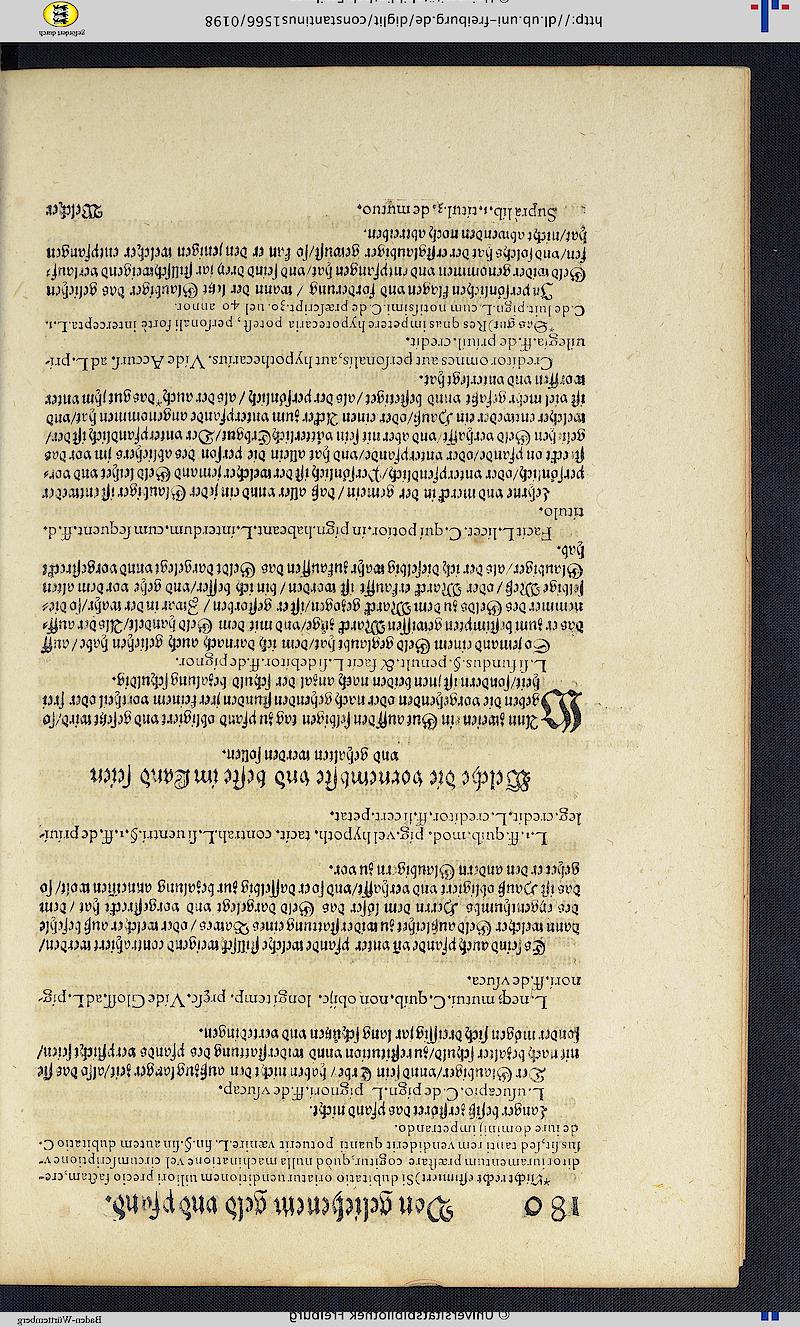 180 Von geliehenem geld vnd pfand.
*Nicht recht estimiert) Si dubitatio oriatur uenditionem uiliori precio factam, cre-
ditor iuramentum præstare cogitur, quòd nulla machinatione vel circumscriptione v-
sus sit, sed tanti rem vendiderit quanti potuerit vænire. L. fin. §. sin autem dubitatio C.
de iure dominij impetrando.
Langer besitz zerstöret das pfand nicht.
L. usucapio. C. de pign. L. pignori. ff. de vsucap.
Der Glaubiger / annd sein Erbe / haben nicht den anfang langer zeit / also das sie
nit nach bezalter schuld / zu restitution annd widerstattung des pfands verpflicht seien /
sonder mögen sich dreissig jar lang schützen vnd verteidingen.
L. neq; mutui. C. quib. non objic. longi temp. præsc. Vide Gloss. ad L. pig-
nori. ff. de vsuca.
Es seind auch pfande ausz anter pfande welche stillschweigend contrahiert werden /
dann welcher Geld auszleihet zu widerstattung eines Bawes / oder welcher ausz befehle
des eygenthumbs Herrn dem leser das Geld dargelegt vnd vorgestreckt hat / dem
das ist Hausz obligiert vnd verhafft / vnd so er dasselbig zur bezalung annemen wolt / so
gehet er den andern Glaubigern zu vor.
L. 1. ff. quib. mod. pig. vel hypoth. tacit. contrah. L. si uentri. §. 1. ff. de priui-
leg. credit. L. creditor. ff. si cert. petat.
Welche die vornembste vnd beste im Land seien
vnd gehalten werden sollen.
WAnn zweien ein Gut auff den selbigen tag zu pfand obligiert vnd gesetzt wird / so
geben die vorgehenden oder nach gehenden stunden jrer keinem vortheil oder frei
heit / sondern ist jnen beiden nach anzal der schuld bezalung schuldig.
L. si fundus. §. penult. & facit L. si debitor. ff. de pignor.
So jemand einem Geld geglaubt hat / dem ich darnach auch geliehen habe / auff
das er zum bestimpten gewissen Marckt zöge / vnd mit dem Geld handelt / Als der auff-
nemmer des Gelds zu dem Marckt gezogen / ist er gestorben / Zwar in der wahr / so die-
selbige Mesz / oder Marckt erkaufft ist worden / bin ich besser / vnd gehe vor dem alten
Glaubiger / als der ich dieselbig wahr zukauffen das Geldt dargelegt annd vorgestreckt
hab.
Facit L. licet. C. qui potior. in pign. habeant. L. interdum. cum sequent. ff. d.
titulo.
Lehrne vnd merck in der gemein / dasz aller annd ein jeder Glaubiger ist entweder
persönlich / oder anterpfendlich / Persönlich ist der welcher jemand Geld leihet vnd vor-
streckt on pfande / oder anterpfande / vnd hat allein die person des ableihers jm vor das
geliehen Geld verhafft / vnd aber nit sein vätterlich Erbgut / Der anterpfandlich ist der /
welcher entweder ein Hausz / oder einen Acker zum anterpfande angenommen hat / vnd
ist viel mehr gefaszt annd befestiget / als der persönlich / als der auch *das gut jhm anter
worffen vnd anterlegt hat.
Creditor omnes aut personalis, aut hypothecarius. Vide Accurs. ad L. pri-
uilegia. ff. de priuil. credit.
*Das gut) Res quas impetere hypotecaria potest, personali fortè intercepta. L. 1.
C. de luit. pign. L. cum notissimi. C. de præscript. 30. uel 40. annor.
In persönlichen klagen vnd forderung / wann der letst Glaubiger das geliehen
Geld wider genommen vnd empfangen hat / vnd seind drey jar stillschweigend verlauf-
fen / vnd solchs hat der erst glaubiger gewust / so kan er den jenigen welcher empfangen
hat / nicht abwenden noch abtreiben.
Suprà lib. 1. titul. 3. de mutuo.
Welcher
http://dl.ub.uni-freiburg.de/diglit/constantinus1566/0198
© Universitätsbibliothek Freiburg
gefördert durch
Baden-Württemberg